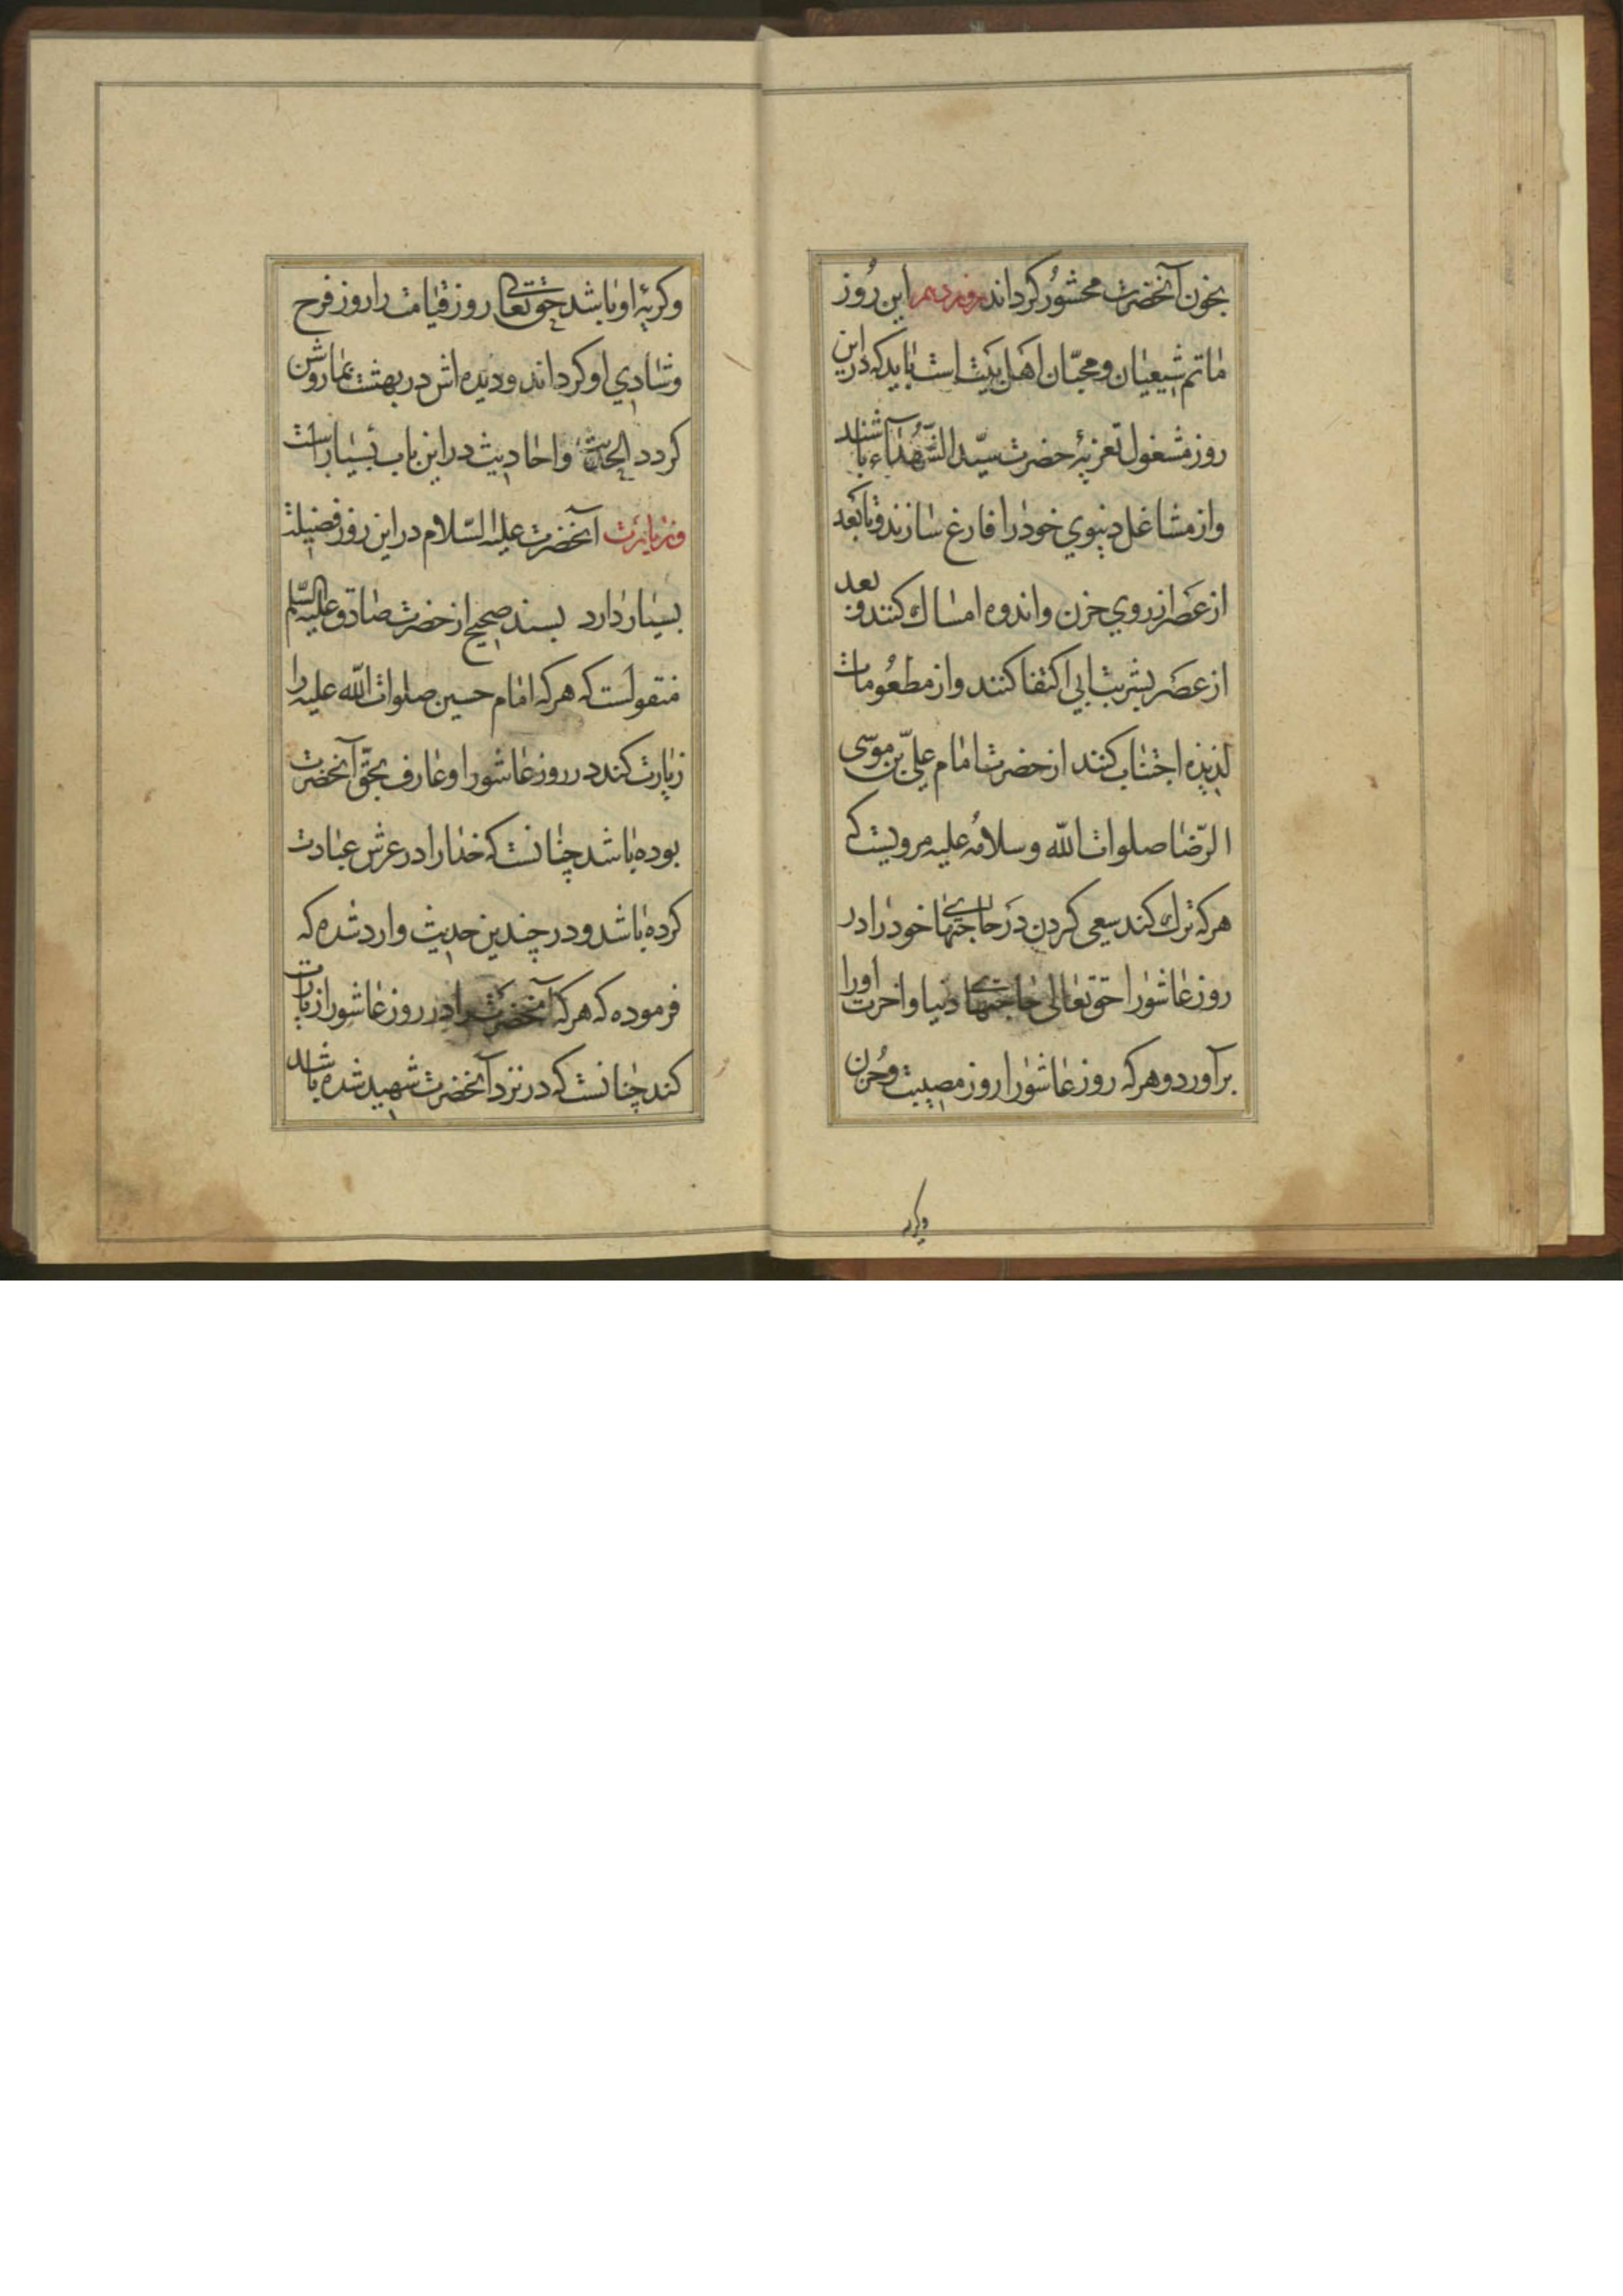 بخون آنحضرت محشور کرداند روز دهم این روز
ماتم شیعیان و محبّان اهل بیت است باید که در این
روز مشغول تعزیهٔ حضرت سیّد الشّهداء باشند
و از مشاغل دنیوي خود را فارغ سازند و تا بعد
از عصر از روي حزن و اندوه امساك کنند و بعد
از عصر بشربت آبی اکتفا کنند و از مطعومات
لذیذه اجتناب کنند از حضرت امام علیّ بن موسی
الرّضا صلوات اللّه و سلامه علیه مرویست که
هرکه ترك کند سعی کردن در حاجتهاے خود را در
روز عاشورا حق تعالی حاجتهاے دنیا و اخرت او را
برآورد و هرکه روز عاشورا روز مصیبت و حزن
وکریه
و کریهٔ او باشد حق تعالی روز قیامت را روز فرح
و شادي او کرداند و دیده اش در بهشت بما روشن
کردد الحدیث و احادیث در این باب بسیار است
و زیارت آنحضرت علیه السّلام در این روز فضیلت
بسیار دارد بسند صحیح از حضرت صادق علیه السّلم
منقولست که هرکه امام حسین صلوات اللّه علیه را
زیارت کند در روز عاشورا و عارف بحقّ آنحضرت
بوده باشد چنانست که خدا را در عرش عبادت
کرده باشد و در چندین حدیث وارد شده که
فرموده که هرکه آنحضرت را در روز عاشورا زیارت
کند چنانست که در نزد آنحضرت شهید شده باشد